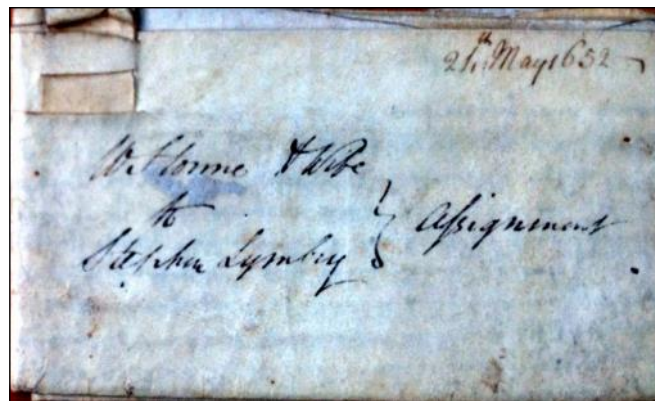 24th May 1652
W. Horne & Wife
to
Stephen Lymbry } Aſsignment